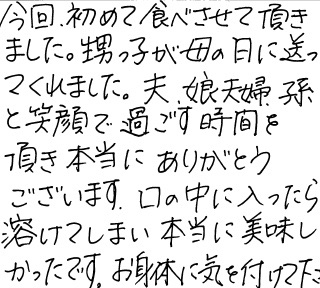 今回、初めて食べさせて頂き
ました。甥っ子が母の日に送っ
てくれました。夫、娘夫婦、孫
と笑顔で過ごす時間を
頂き本当にありがとう
ございます。口の中に入ったら
溶けてしまい本当に美味し
かったです。お身体に気を付けて下さ